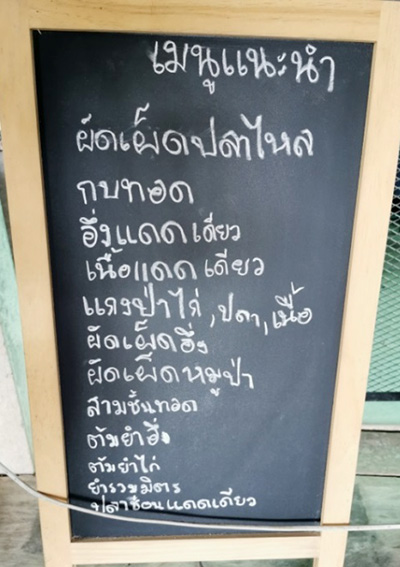 เมนูแนะนำ
ผัดเผ็ดปลาไหล
กบทอด
อึ่งแดดเดียว
เนื้อแดดเดียว
แกงป่าไก่,ปลา,เนื้อ
ผัดเผ็ดอึ่ง
ผัดเผ็ดหมูป่า
สามชั้นทอด
ต้มยำอึ่ง
ต้มยำไก่
ยำรวมมิตร
ปลาช่อนแดดเดียว